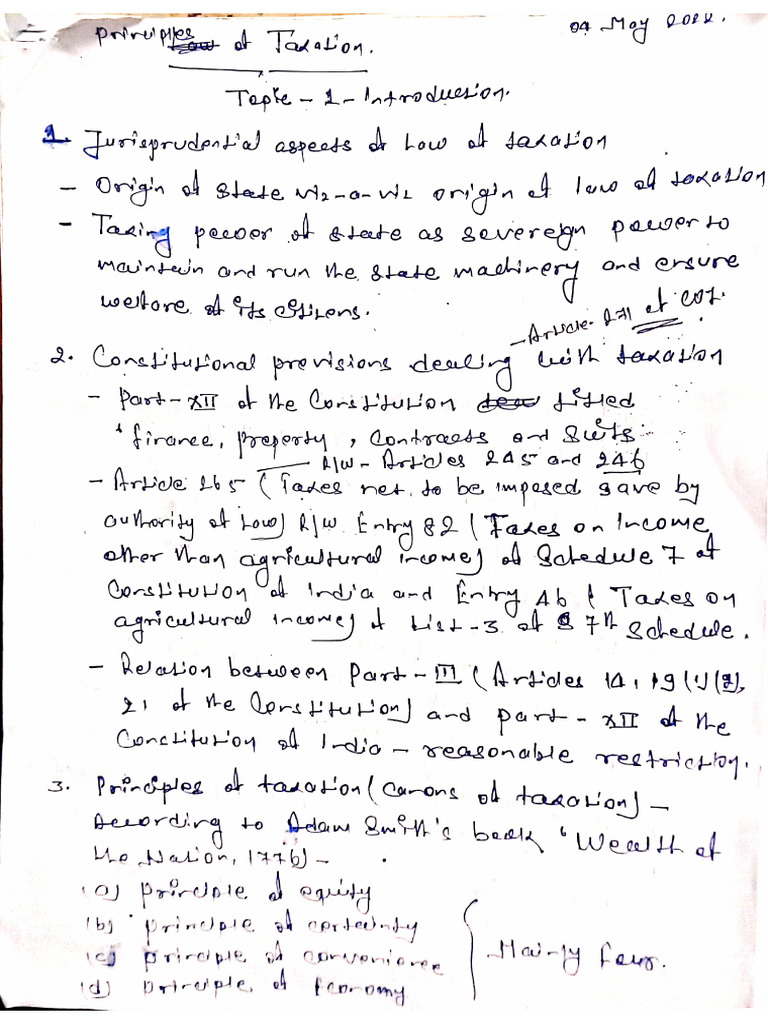 04 May 2022.
Principles Law of Taxation.
Topic - 1 - Introduction.
1. Jurisprudential aspects of Law of taxation
- Origin of State viz-a-viz origin of law of taxation
- Taxing power of state as sovereign power to
maintain and run the state machinery and ensure
welfare of its citizens.
- Article - 271 of COI.
2. Constitutional provisions dealing with taxation
- Part - XII of the Constitution titled
'finance, property, contracts and suits
R/W - Articles 245 and 246
- Article 265 (Taxes not to be imposed save by
authority of Law) R/W Entry 82 (Taxes on Income
other than agricultural income) of Schedule 7 of
Constitution of India and Entry 46 (Taxes on
agricultural income) of List - 3 of 7th Schedule.
- Relation between Part - III (Articles 14, 19(1)(g),
21 of the Constitution) and part - XII of the
Constitution of India - reasonable restriction.
3. Principles of taxation (canons of taxation) -
According to Adam Smith's book 'Wealth of
the Nation, 1776) -
(a) principle of equity
(b) principle of certainty
(c) principle of convenience
(d) principle of Economy
Mainly four.